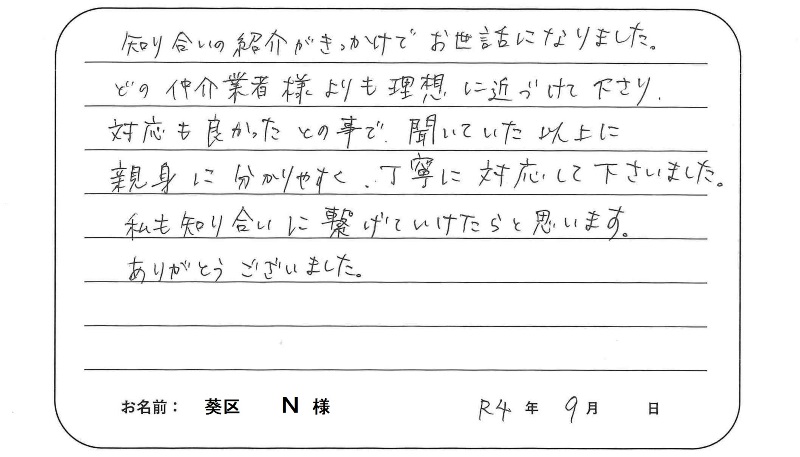 知り合いの紹介がきっかけで お世話になりました。
どの仲介業者様よりも理想に近づけて下さり、
対応も良かったとの事で、聞いていた以上に
親身に分かりやすく、丁寧に対応して下さいました。
私も知り合いに繋げていけたらと思います。
ありがとうございました。
お名前： 葵区 N 様 R4 年 9 月 日